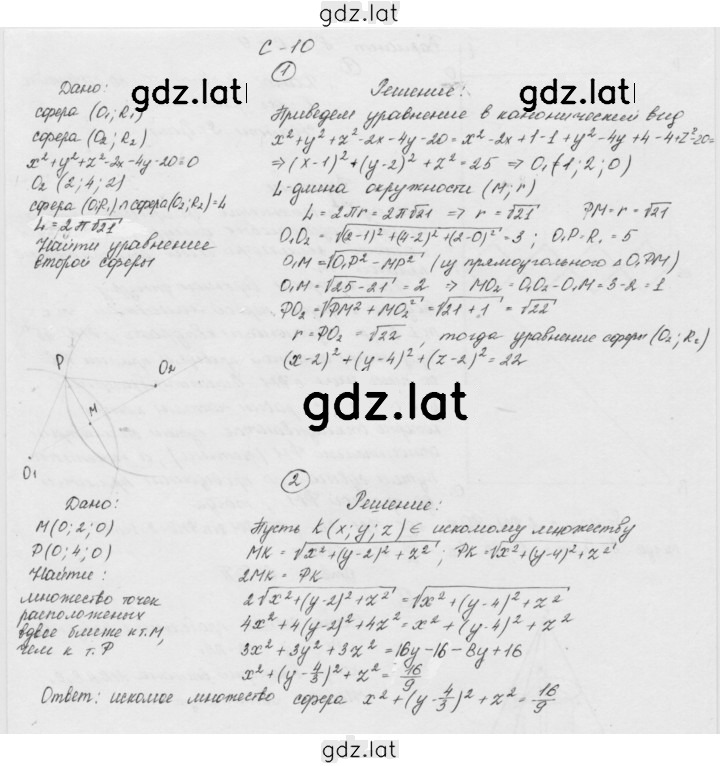 gdz.lat
С-10
①
gdz.lat
gdz.lat
Дано:
сфера (O₁; R₁)
сфера (O₂; R₂)
x²+y²+z²-2x-4y-20=0
O₂ (2; 4; 2)
сфера(O₁R₁)∩сфера(O₂;R₂)=L
L = 2π√21
Найти уравнение
второй сферы
Решение:
Приведем уравнение в канонический вид
x²+y²+z²-2x-4y-20=x²-2x+1-1+y²-4y+4-4+z²-20=
⇒(x-1)²+(y-2)²+z²=25 ⇒ O₁(1; 2; 0)
L-длина окружности (M; r)
L = 2πr = 2π√21 ⇒ r = √21 PM=r=√21
O₁O₂ = √(2-1)²+(4-2)²+(2-0)² = 3; O₁P=R₁=5
O₁M=√O₁P²-MP² (из прямоугольного ΔO₁PM)
O₁M=√25-21=2 ⇒ MO₂=O₁O₂-O₁M=3-2=1
PO₂=√PM²+MO₂²=√21+1=√22
r=PO₂=√22, тогда уравнение сферы (O₂; R₂)
(x-2)²+(y-4)²+(z-2)²=22
P
O₂
M
O₁
gdz.lat
②
Дано:
M(0; 2; 0)
P(0; 4; 0)
Найти:
множество точек
расположенных
вдвое ближе к т.M,
чем к т. P
Решение:
Пусть K(x; y; z) ∈ искомому множеству
MK = √x²+(y-2)²+z²; PK=√x²+(y-4)²+z²
2MK = PK
2√x²+(y-2)²+z²=√x²+(y-4)²+z²
4x²+4(y-2)²+4z²=x²+(y-4)²+z²
3x²+3y²+3z²=16y-16-8y+16
x²+(y-4/3)²+z²=16/9
Ответ: искомое множество сфера x²+(y-4/3)²+z²=16/9
gdz.lat